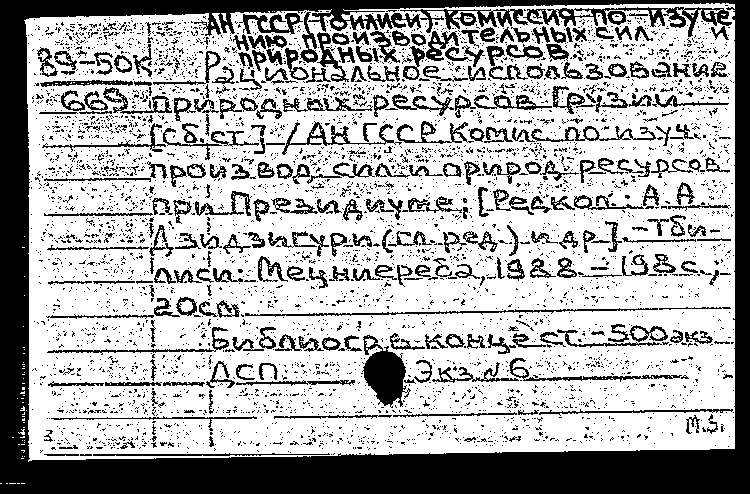 АН ГССР (Тбилиси). Комиссия по изуче-
нию производительных сил и
природных ресурсов.
89-50К
Рациональное использование
669 природных ресурсов Грузии:
[Сб. ст.] / АН ГССР. Комис. по изуч.
производ. сил и природ. ресурсов
при Президиуме; [Редкол.: А. А.
Дзидзигури (гл. ред.) и др.]. - Тби-
лиси: Мецниереба, 1988. - 198 с.;
20 см
Библиогр. в конце ст. - 500 экз.
ДСП. Экз. № 6
M.S.